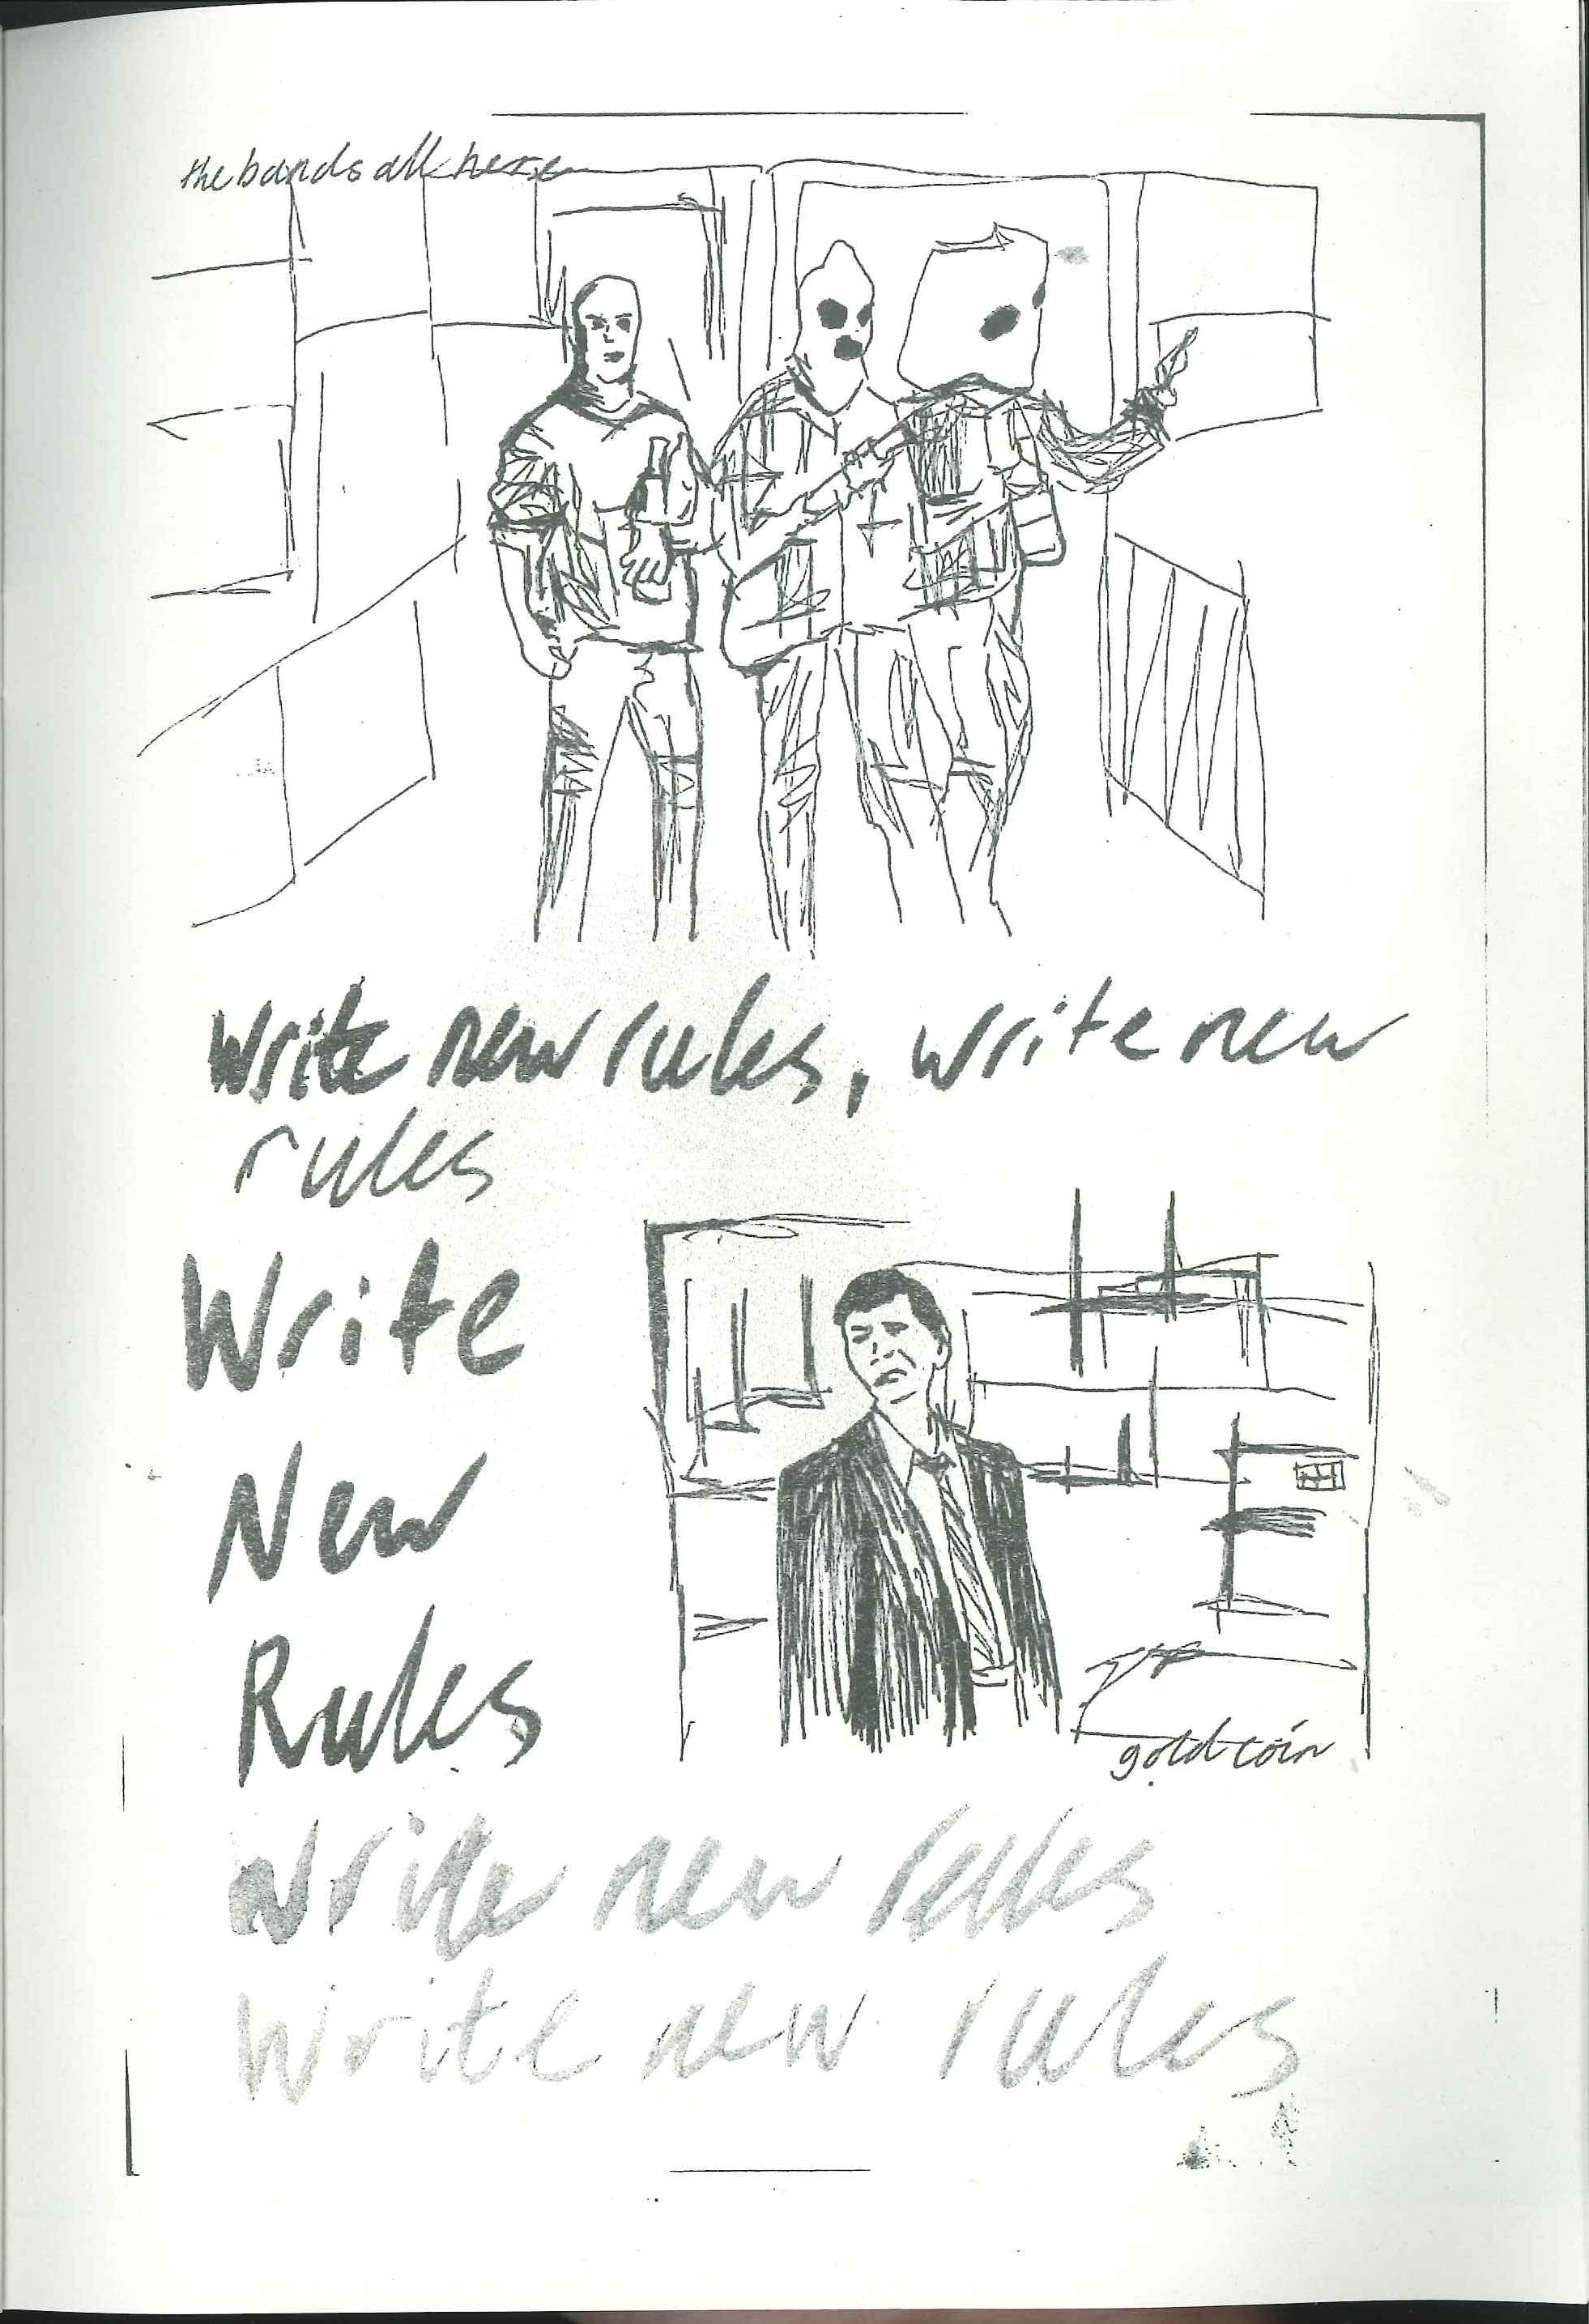 the bands all here
Write new rules, write new
rules
Write
New
Rules
gold coin
Write new rules
Write new rules